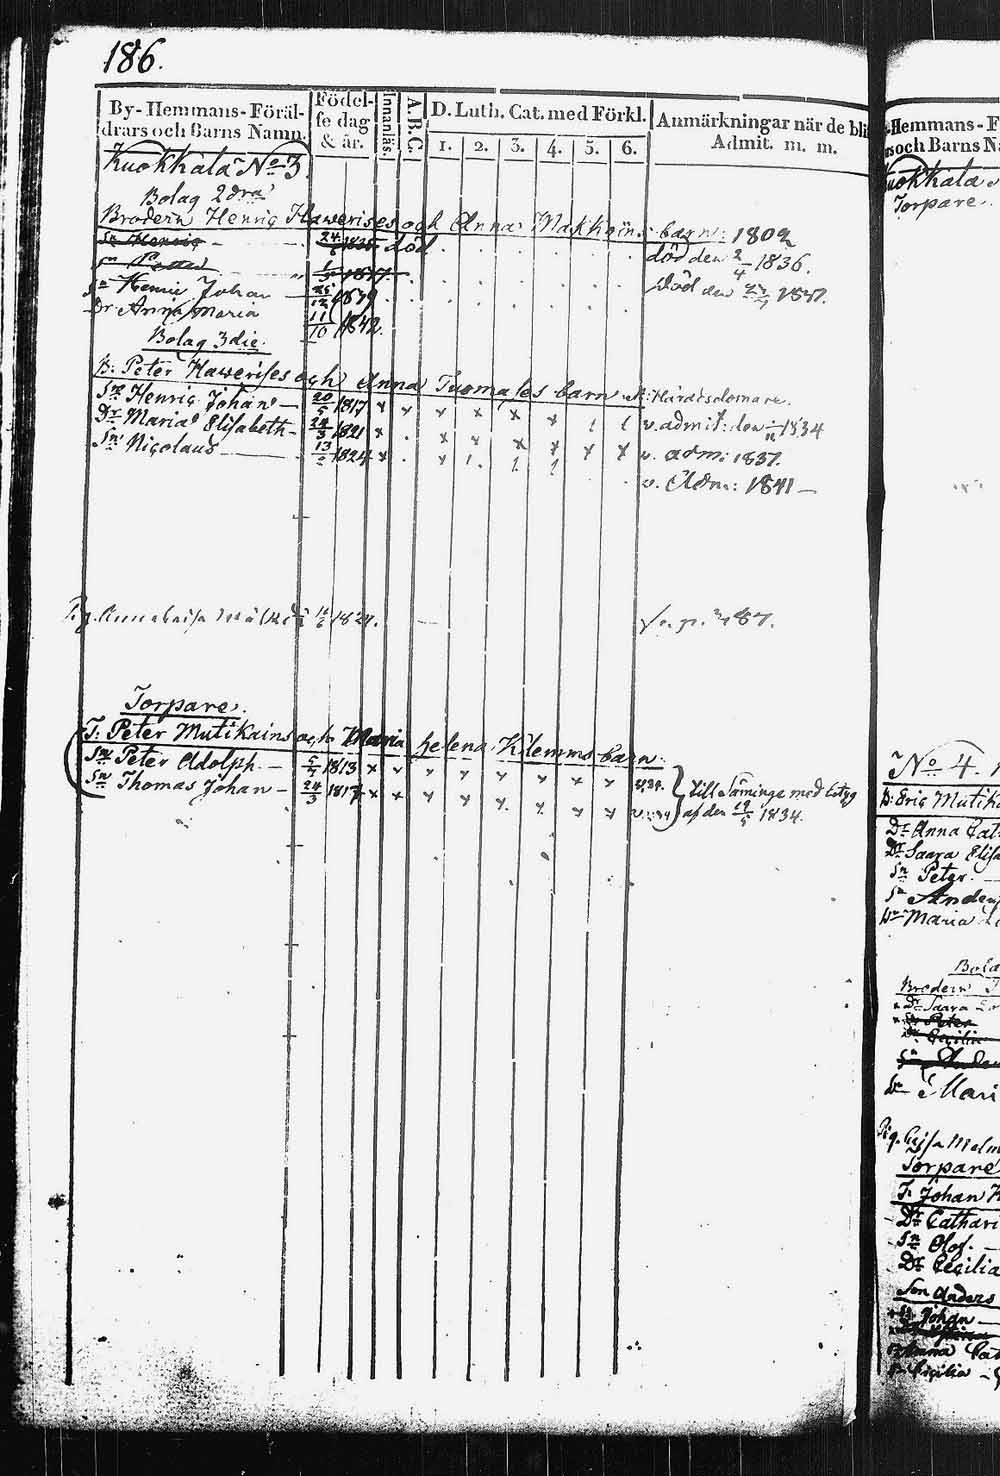 186.
By-Hemmans-Föräl-
drars och Barns Namn.
Födel-
se dag
& år.
Innanläs.
A.B.C.
D. Luth. Cat. med Förkl.
1. 2. 3. 4. 5. 6.
Anmärkningar när de bli
Admit. m. m.
Kuokkala No 3.
Bolag 2dra
Brodern Henric Hawerises och Anna Makkoins barn: 1802
Sn Henric 24/6 1835 död död den 2/4 1836.
Sn Petter 1837 Död den 1837.
Sn Henric Johan 25/12 1839
Dr Anna Maria 11/10 1842.
Bolag 3die.
B: Peter Hawerises och Anna Tuomases barn N: Häradsdomare.
Sn Henric Johan 20/5 1817 x x x x x x v. admit: den 1834
Dr Maria Elisabeth 24/3 1821 x x x x x x v. adm: 1837.
Sn Nicolaus 13 1824 x v. Adm: 1841
1824.
Torpare.
T: Peter Mutikains och Maria helena Klemms barn.
Sn Peter Adolph 5/7 1813 x x x x x x x x Till Säminge med betyg
Sn Thomas Johan 24/3 1817 x x x x x x x x af den 19/5 1834.
-Hemmans-F
rs och Barns Na
uokkala
Torpare.
No 4.
B: Eric Mutik
Dr Anna Cat
Dr Saara Elisa
Sn Peter
Sn Anders
Dr Maria
Bola
Brodern
Dr Saara
Sn Peter
Dr Cecilia
Sn Ande
Dr Mari
Pig. Caisa Malm
Torpare
T: Johan
Dr Cathari
Sn Olof.
Dr Cecilia
Son Anders
Johan
Anna Cat
Cecilia